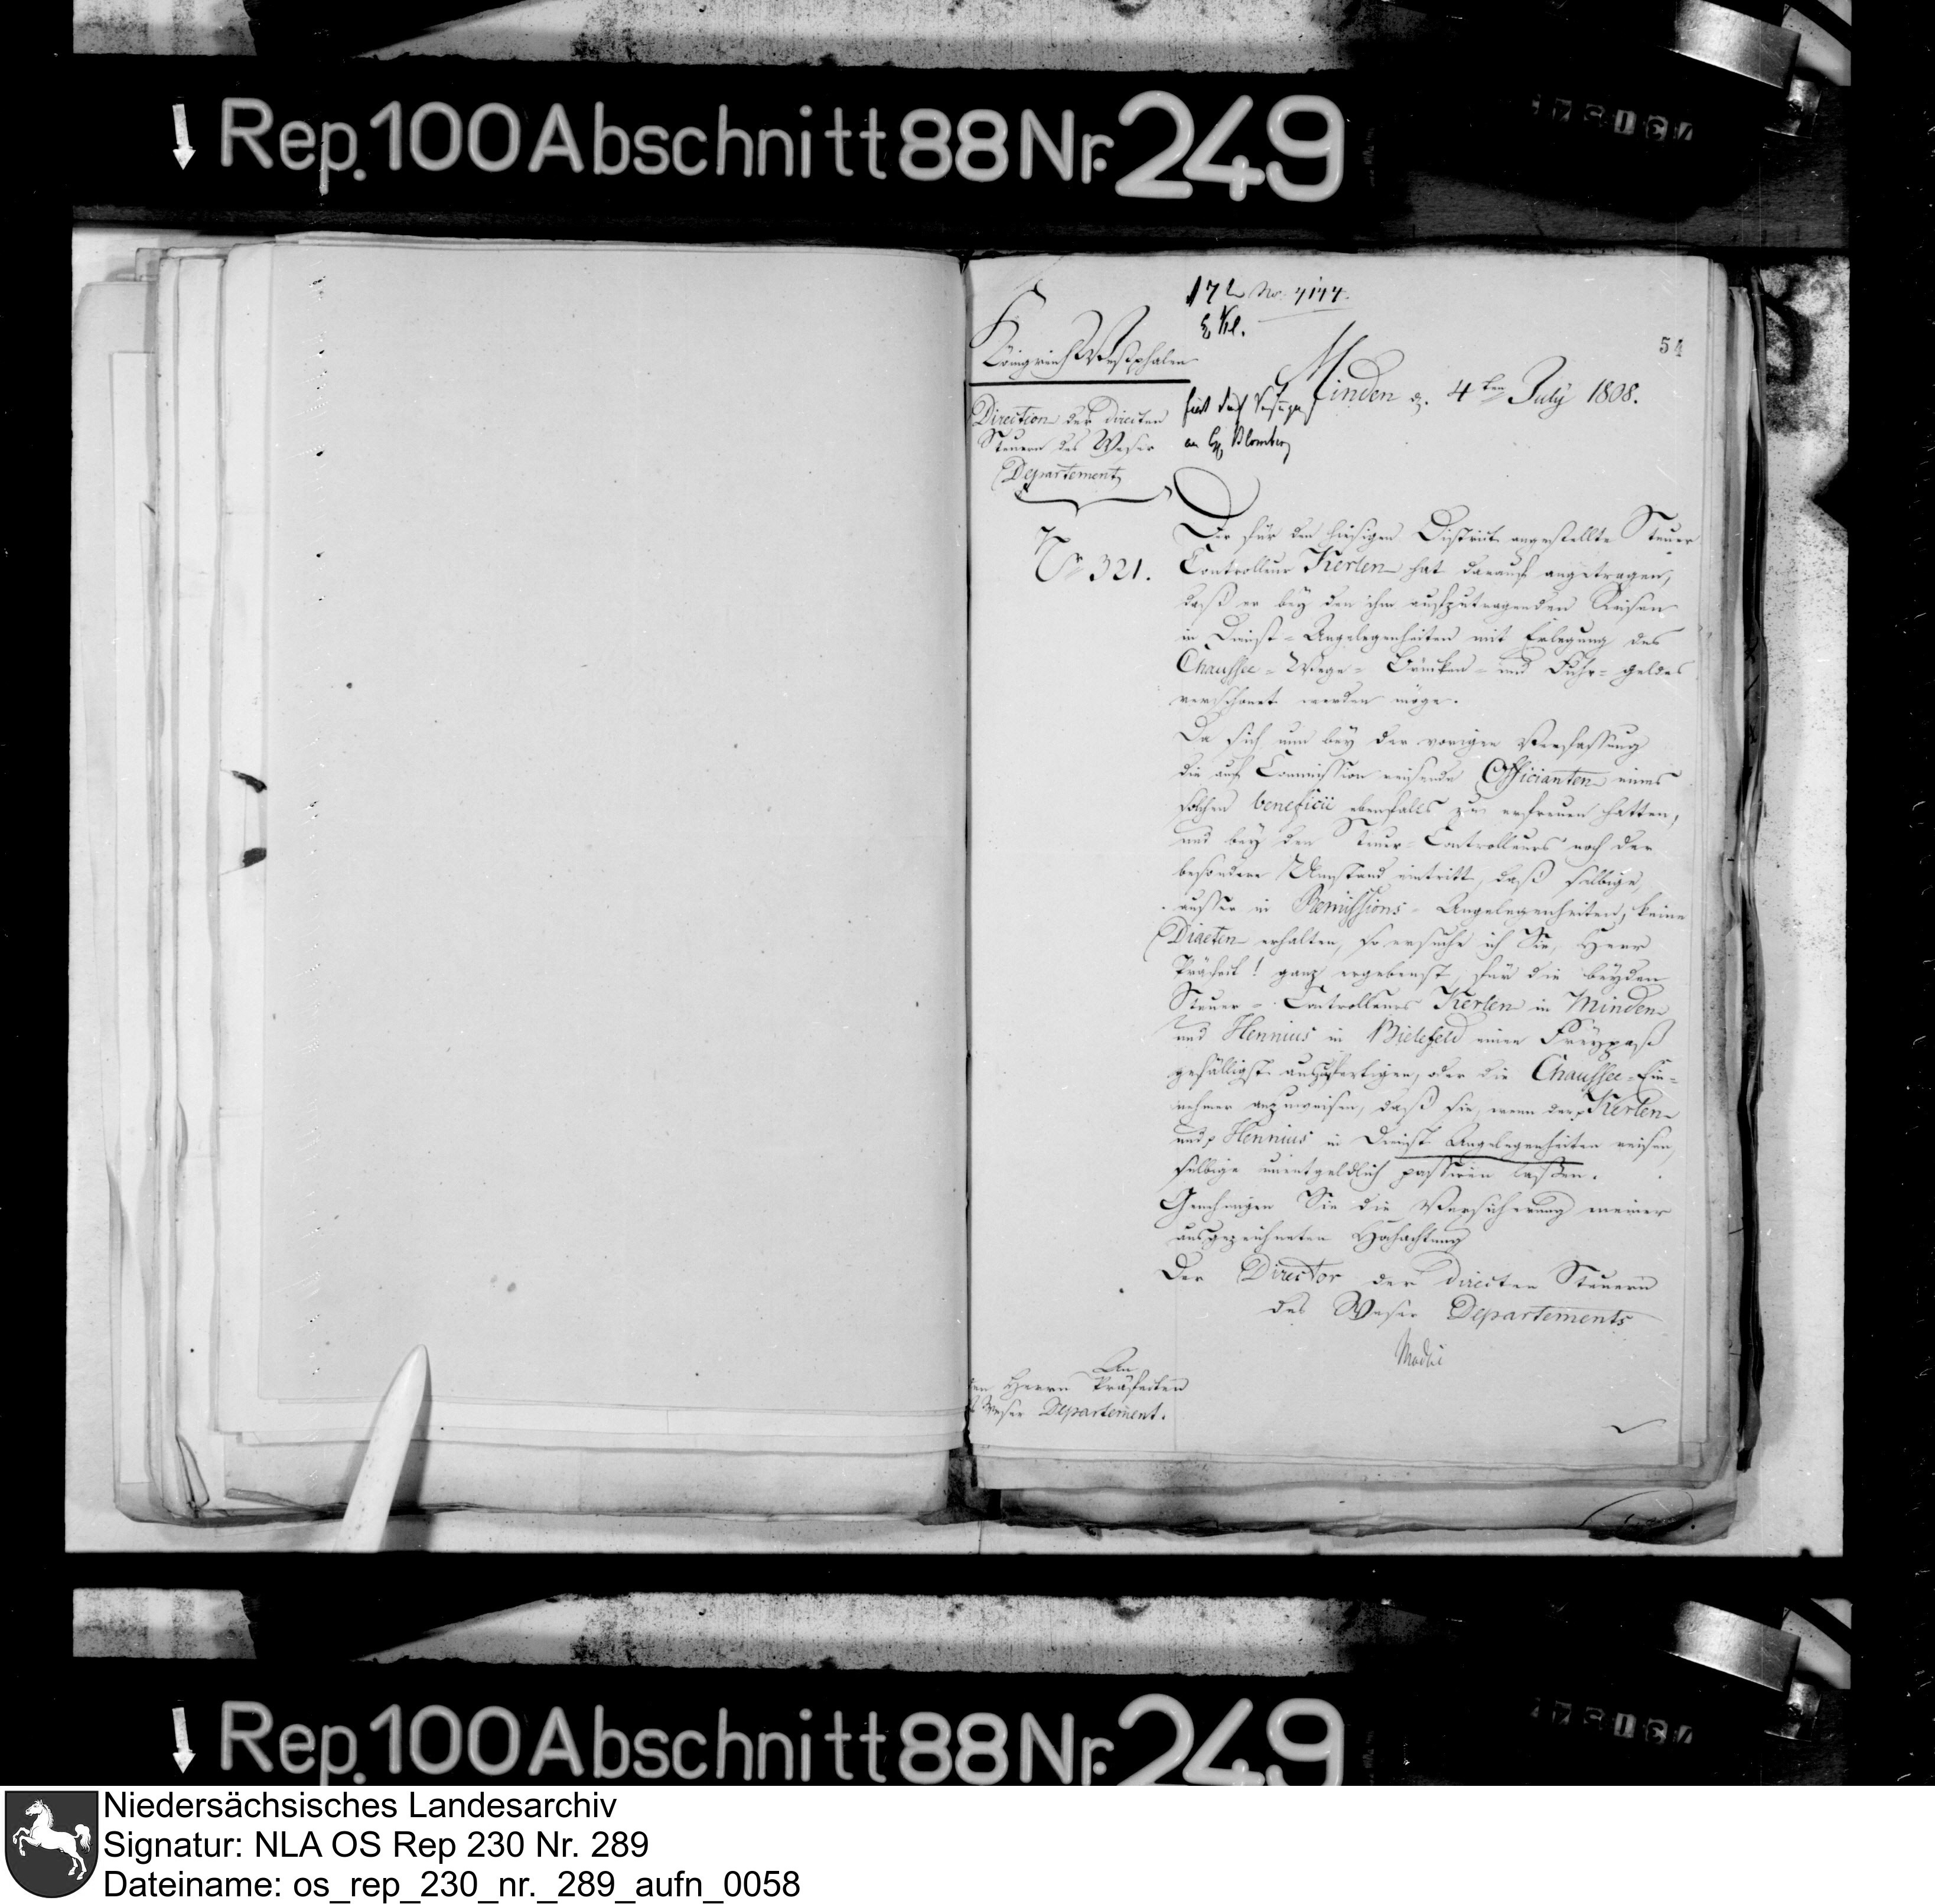 Rep. 100 Abschnitt 88 Nr. 249
No. 4144.
54
Königreich Westphalen
Minden d. 4ten July 1808.
Direction der directen
Steuern des Weser
Departements
an H. Blomberg
No 321.
Der für den hiesigen District angestellte Steuer
Controlleur Kerlen hat darauf angetragen,
daß er bey den ihm aufzutragenden Reisen
in Dienst-Angelegenheiten mit Erlegung des
Chaussée-Wege-Brücken-und Fuhr-geldes
verschont werden möge.
Da sich nun bey der vorigen Verfassung
die auf Commission reisende Officianten eines
solchen beneficii ebenfalls zu erfreuen hatten,
und bey den Steuer-Controlleurs noch der
besondere Umstand eintritt, daß selbige,
ausser in Remissions-Angelegenheiten, keine
Diaeten erhalten, so ersuche ich Sie, Herr
Präfect! ganz ergebenst, für die beyden
Steuer-Controlleurs Kerlen in Minden
und Hennius in Bielefeld einen Freypaß
gefälligst auszufertigen, oder die Chaussee-Ein-
nehmer anzuweisen, daß sie, wenn der p Kerlen
und p Hennius in Dienst Angelegenheiten reisen,
selbige unentgeldlich passiren lassen.
Genehmigen Sie die Versicherung meiner
ausgezeichneten Hochachtung
Der Director der directen Steuern
des Weser Departements
An
den Herrn Präfecten
Weser Departement.
Rep. 100 Abschnitt 88 Nr. 249
Niedersächsisches Landesarchiv
Signatur: NLA OS Rep 230 Nr. 289
Dateiname: os_rep_230_nr._289_aufn_0058